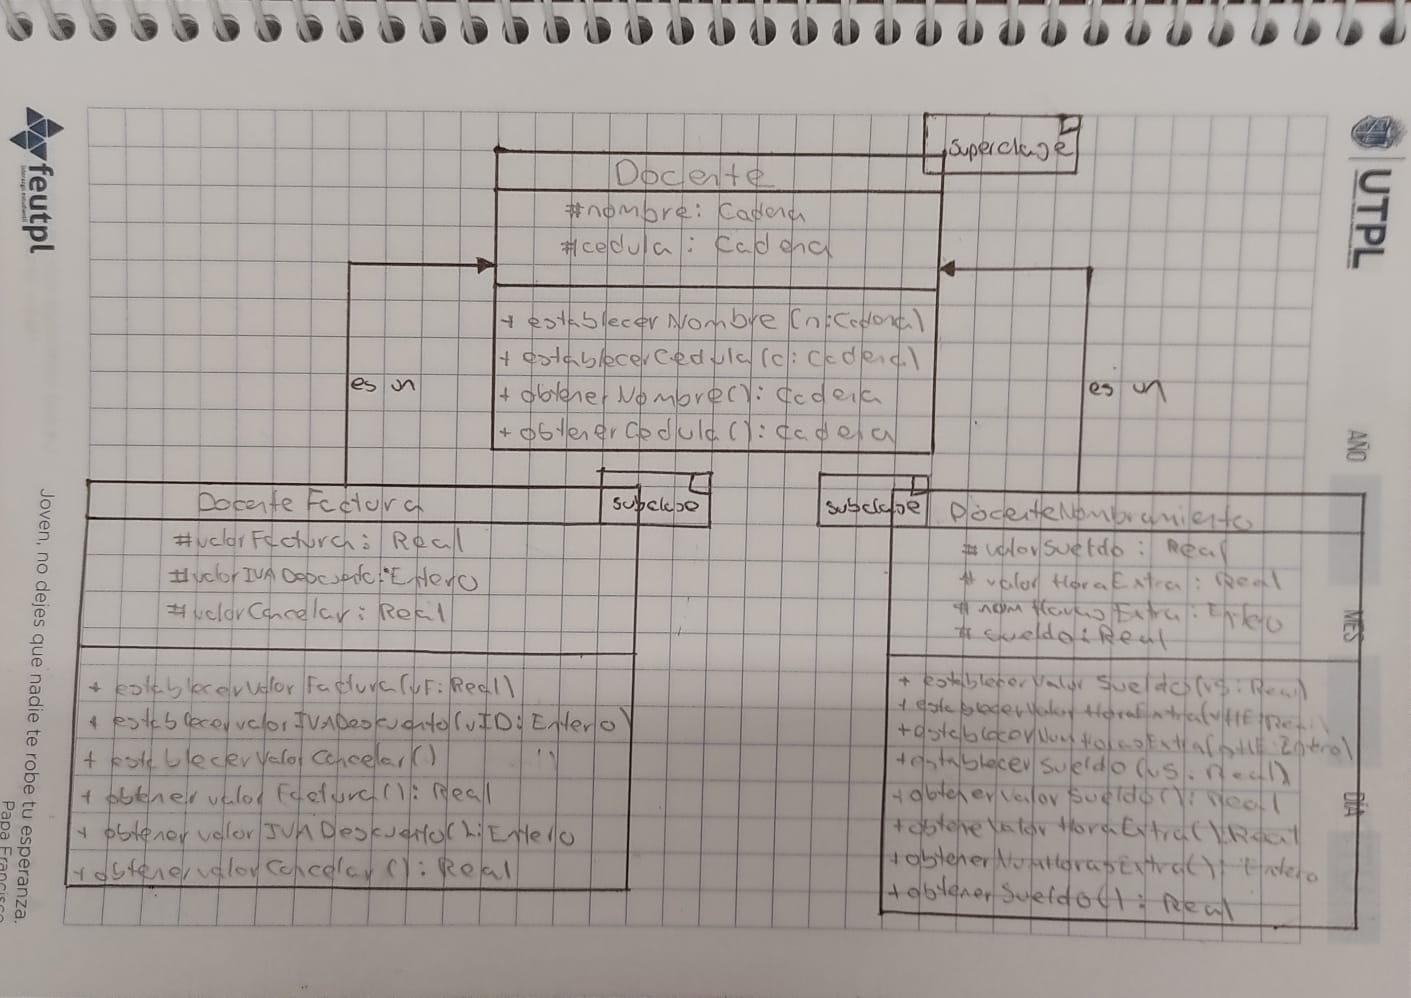 superclase
Docente
#nombre: Cadena
#cedula: Cadena
+ establecerNombre(n:Cadena)
+ establecerCedula(c: Cadena)
+ obtenerNombre(): Cadena
+ obtenerCedula(): Cadena
es un
es un
subclase
DocenteFactura
#valorFactura: Real
#valorIVADescuento: Entero
#valorCancelar: Real
+ establecerValorFactura(vF: Real)
+ establecervalorIVADescuento(vID: Entero)
+ establecerValorCancelar()
+ obtenervalorFactura(): Real
+ obtenervalorIVADescuento(): Entero
+ obtenervalorCancelar(): Real
subclase
DocenteNombramiento
# valorSueldo: Real
# valorHoraExtra: Real
# numHorasExtra: Entero
# sueldo: Real
+ establecerValorSueldo(vs: Real)
+ establecerValorHoraExtra(vHE: Real)
+ establecerNumHorasExtra(nHE: Entero)
+ establecerSueldo(vs: Real)
+ obtenerValorSueldo(): Real
+ obteneValorHoraExtra(): Real
+ obtenerNumHorasExtra(): Entero
+ obtenerSueldo(): Real
UTPL
AÑO
MES
DÍA
feutpl
Joven, no dejes que nadie te robe tu esperanza.
Papa Francisco